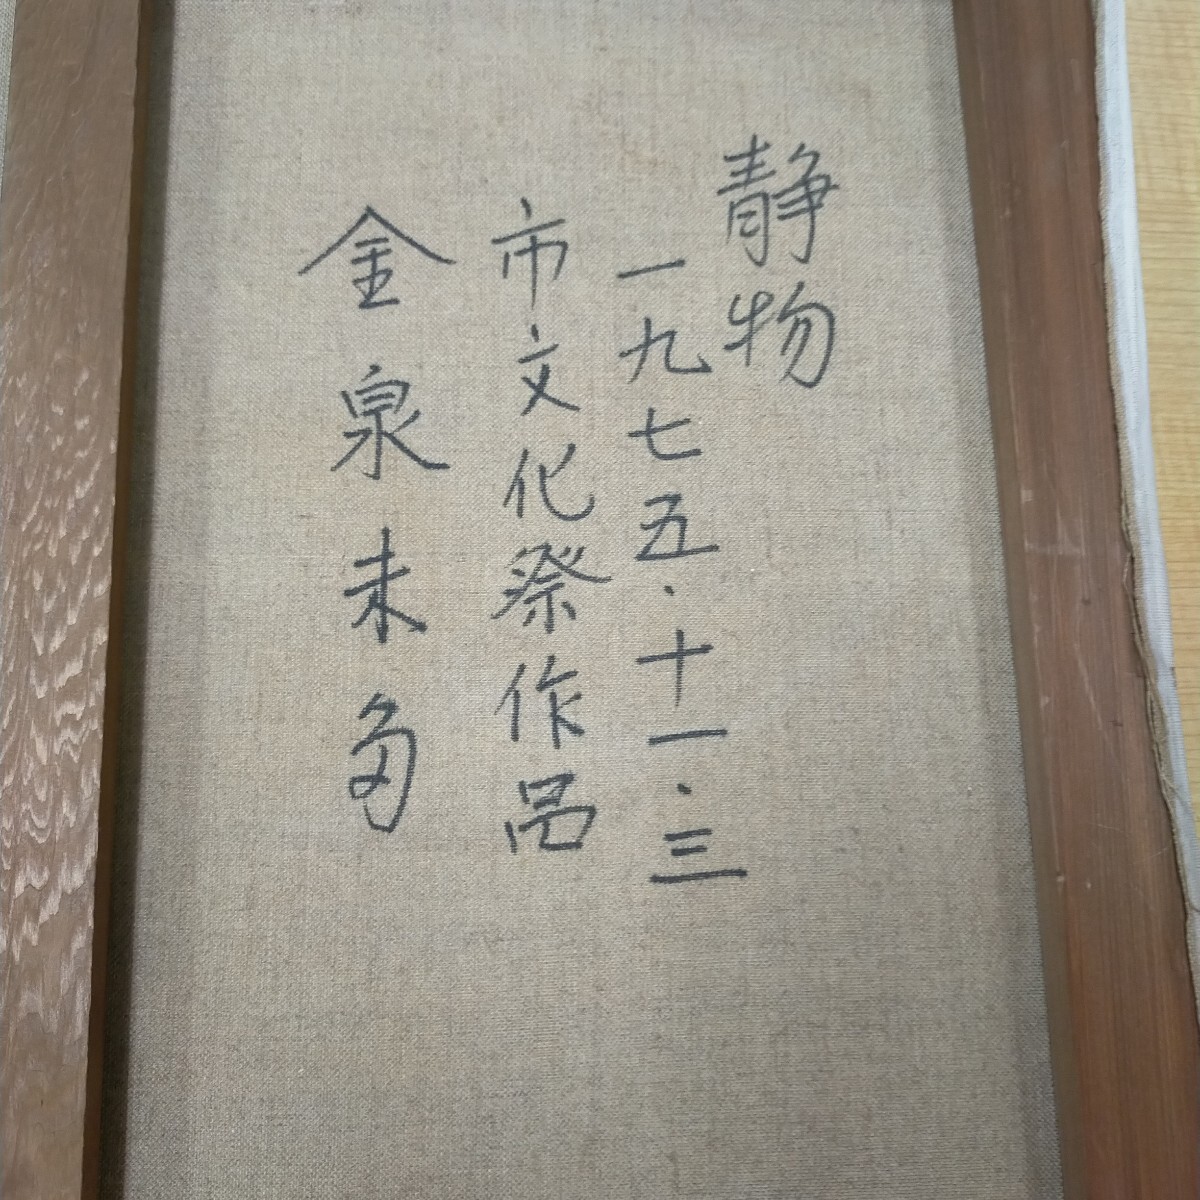 静物
一九七五・十一・三
市文化祭作品
金泉未